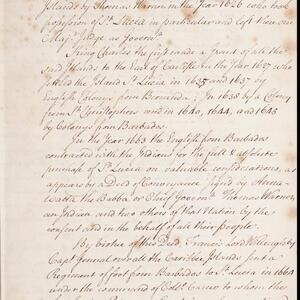 Islands by Thomas Warner in the Year 1626 who took
possession of St. Lucia in particular and left there one
Majr. Judge as Governr.
King Charles the first made a Grant of all the
said Islands to the Earl of Carlisle in the Year 1627 who
settled the Island St. Lucia in 1635 and 1637 by
English Colonys from Bermuda; In 1638 by a Colony
from St. Christophers and in 1640, 1644, and 1645
by Colonys from Barbados.
In the Year 1663 the English from Barbados
contracted with the Indians for the full & absolute
purchase of St. Lucia on valuable considerations, as
appears by a Deed of Conveyance signed by
the Babba, or Chief Governr. Thomas Warner
an Indian and two others of that Nation by the
consent and in the behalf of all their people.
By virtue of this Deed Francis Lord Willoughby
Capt. General of all the Caribbee Islands sent a
Regiment of foot from Barbados to St. Lucia in 1664
under the command of Carew to